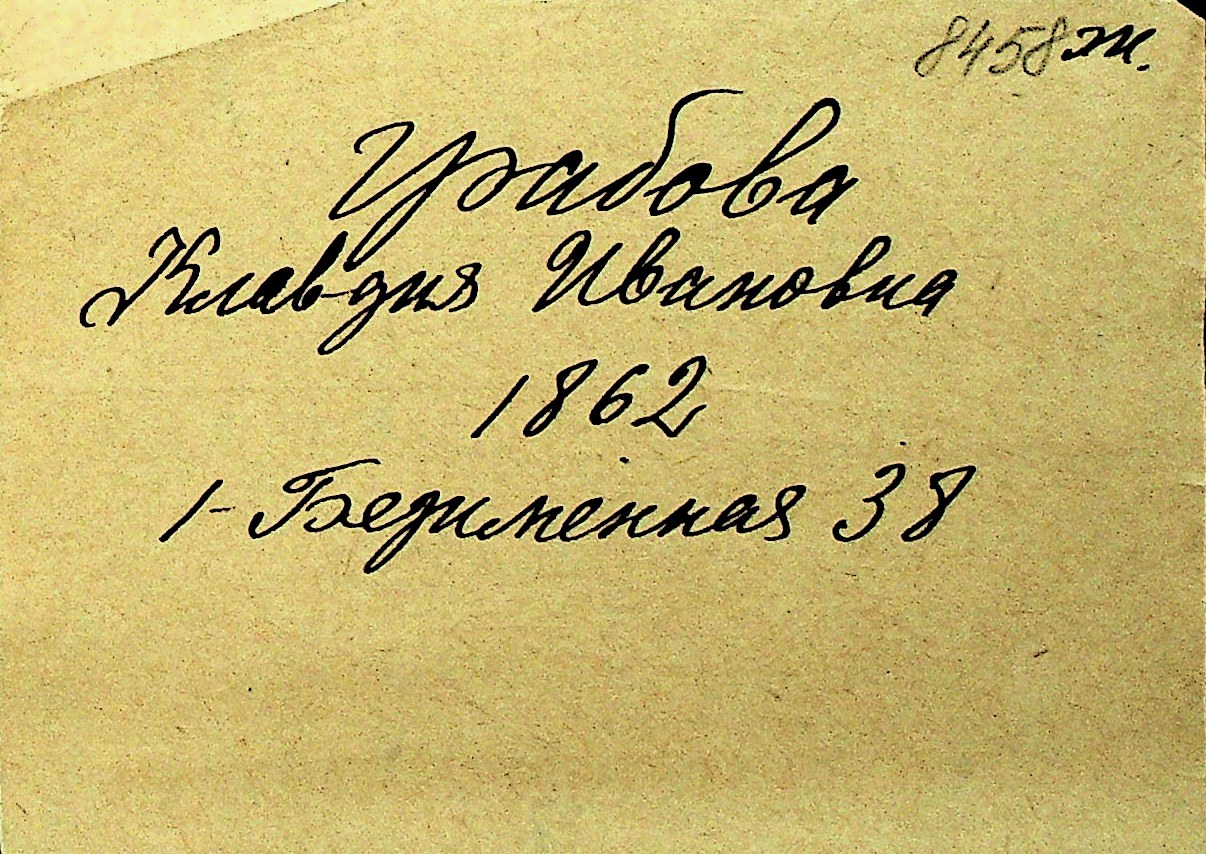 8458ж.
Грабова
Клавдия Ивановна
1862
1-Безименная 38